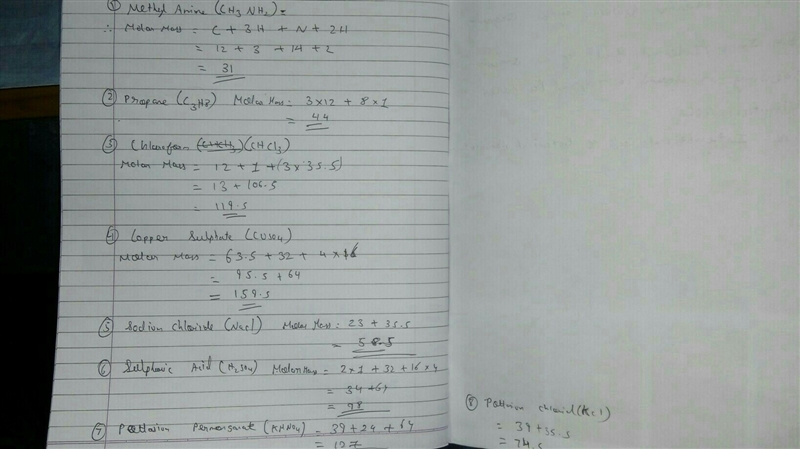 ① Methyl Amine (CH3NH2) =
∴ Molar Mass = C + 3H + N + 2H
= 12 + 3 + 14 + 2
= 31
② Propane (C3H8) Molar Mass = 3×12 + 8×1
= 44
③ Chloroform (CHCl3)
Molar Mass = 12 + 1 + (3×35.5)
= 13 + 106.5
= 119.5
④ Copper Sulphate (CuSO4)
Molar Mass = 63.5 + 32 + 4×16
= 95.5 + 64
= 159.5
⑤ Sodium Chloride (NaCl) Molar Mass = 23 + 35.5
= 58.5
⑥ Sulphuric Acid (H2SO4) Molar Mass = 2×1 + 32 + 16×4
= 34 + 64
= 98
⑦ Permanganate = 39 + 24 + 64
= 127
⑧ chlorid (KCl)
= 39 + 35.5
= 74.5